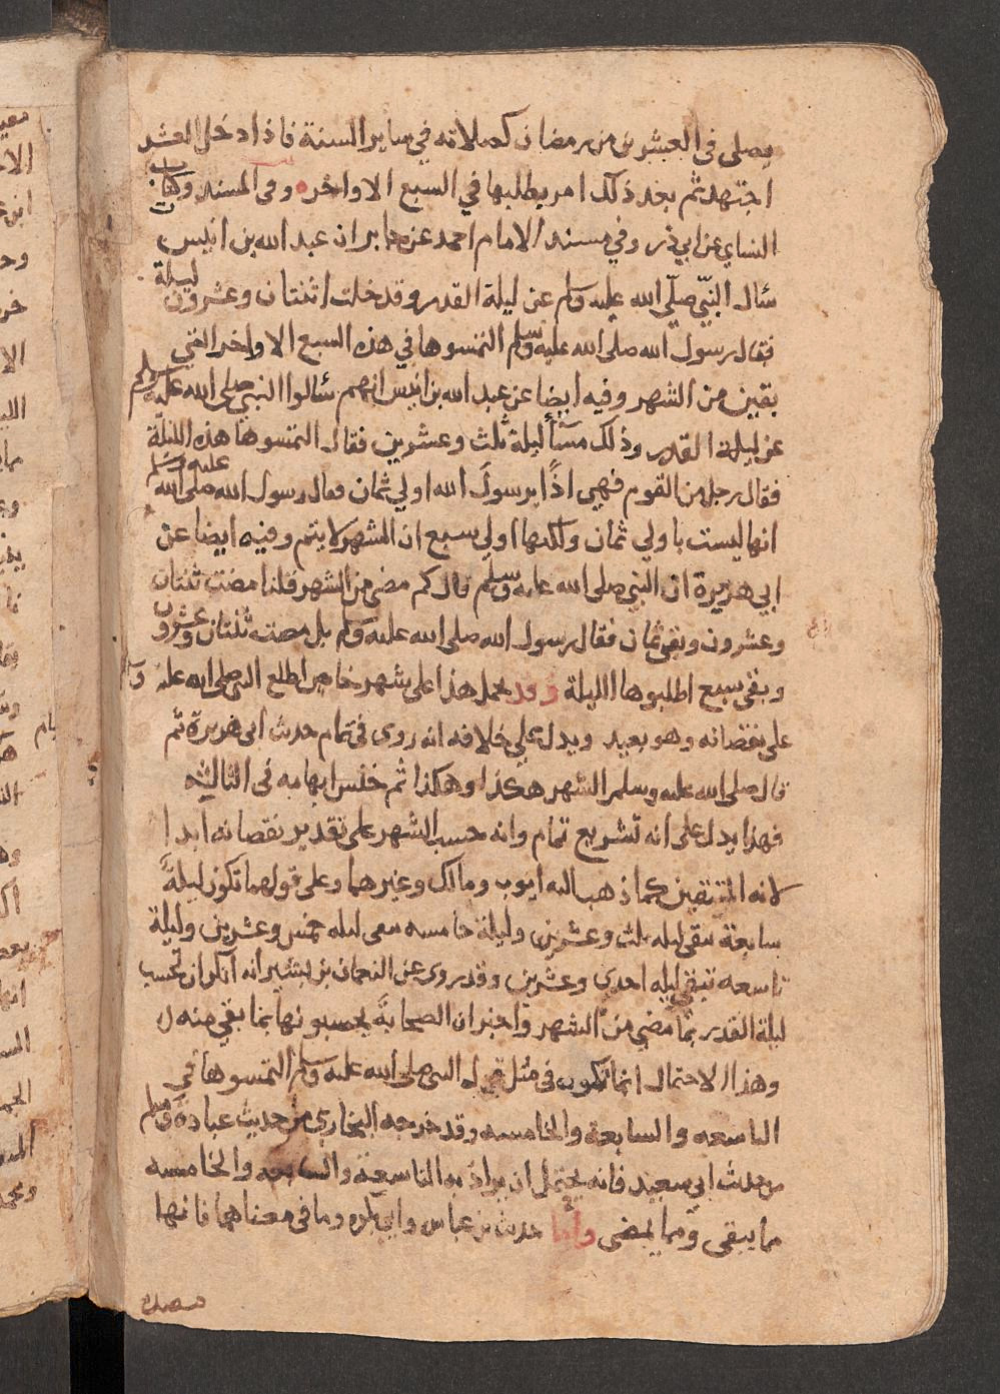 يصلى فى العشرين من رمضان كصلاته في ساير السنة فاذا دخل العشر
اجتهد ثم بعد ذلك امر بطلبها في السبع الاواخر وفى المسند وكتاب
النساي عن ابي ذر وفي مسند الامام احمد عن جابر ان عبد الله بن انيس
سال النبي صلى الله عليه وسلم عن ليلة القدر وقد خلت اثنتان وعشرون ليلة
فقال رسول الله صلى الله عليه وسلم التمسوها في هذه السبع الاواخر التي
بقين من الشهر وفيه ايضا عن عبد الله بن انيس انهم سالوا النبي صلى الله عليه وسلم
عن ليلة القدر وذلك مساً ليلة ثلث وعشرين فقال التمسوها هذه الليلة
فقال رجل من القوم فهي اذًا يرسول الله اولي ثمان فقال رسول الله صلى الله عليه وسلم
انها ليست باولي ثمان ولكنها اولي سبع ان الشهر لا يتم وفيه ايضا عن
ابي هريرة ان النبي صلى الله عليه وسلم قال كم مضى من الشهر قلنا مضت ثنتان
وعشرون وبقي ثمان فقال رسول الله صلى الله عليه وسلم بل مضت ثنتان وعشرون
وبقي سبع اطلبوها الليلة وقد يحمل هذا على شهر خاص اطلع النبي صلى الله عليه وسلم
على نقصانه وهو بعيد ويدل على خلافه انه روى في تمام حديث ابى هريرة ثم
قال صلى الله عليه وسلم الشهر هكذا وهكذا ثم خنس ابهامه في الثالثه
فهذا يدل على انه تشريع تمام وانه حسب الشهر على تقدير نقصانه ابدا
لانه المتيقن كما ذهب اليه ايوب ومالك وغيرهما وعلى قولهما تكون ليلة
سابعة تبقى ليله ثلث وعشرين وليلة خامسه تبقى ليله خمس وعشرين وليلة
تاسعه تبقى ليله احدى وعشرين وقد روى عن النعمان بن بشير انه انكر ان تحسب
ليلة القدر بما مضى من الشهر واخبر ان الصحابة يحسبونها بما بقي منه
وهذا الاحتمال انما يكون فى مثل قول النبي صلى الله عليه وسلم التمسوها في
التاسعه والسابعة والخامسه وقد خرجه البخاري من حديث عبادة ومسلم
من حديث ابي سعيد فانه يحتمل ان يراد به التاسعة والسابعه والخامسه
مما يبقى ومما يمضى واما حديث بن عباس وابي بكره وما في معناهما فانها